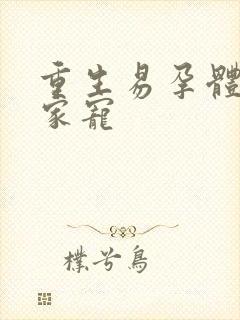 重生易孕體
家寵
樸兮鳥